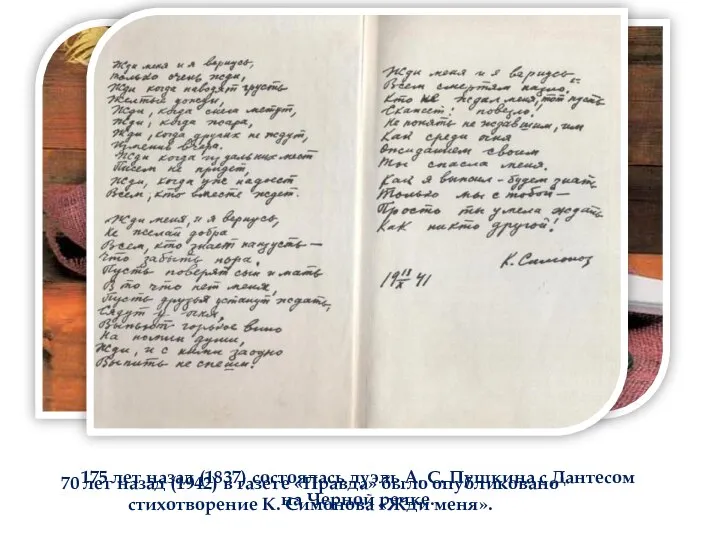 Жди меня и я вернусь,
только очень жди,
Жди когда наводят грусть
Желтые дожди,
Жди, когда снега метут,
Жди, когда жара,
Жди, когда других не ждут,
Изменив вчера.
Жди когда из дальних мест
Писем не придет,
Жди, когда уж надоест
Всем, кто вместе ждет.
Жди меня, и я вернусь,
Не желай добра
Всем, кто знает наизусть —
Что забыть пора.
Пусть поверят сын и мать
В то что нет меня,
Пусть друзья устанут ждать,
Сядут у огня,
Выпьют горькое вино
На помин души,
Жди, и с ними заодно
Выпить не спеши.
Жди меня и я вернусь
Всем смертям назло.
Кто не ждал меня, тот пусть
Скажет: повезло.
Не понять не ждавшим, им
Как среди огня
Ожиданием своим
Ты спасла меня.
Как я выжил - будем знать
Только мы с тобой —
Просто ты умела ждать
Как никто другой!
К. Симонов
41
175 лет назад (1837) состоялась дуэль А. С. Пушкина с Дантесом
на Черной речке.
70 лет назад (1942) в газете «Правда» было опубликовано
стихотворение К. Симонова «Жди меня».